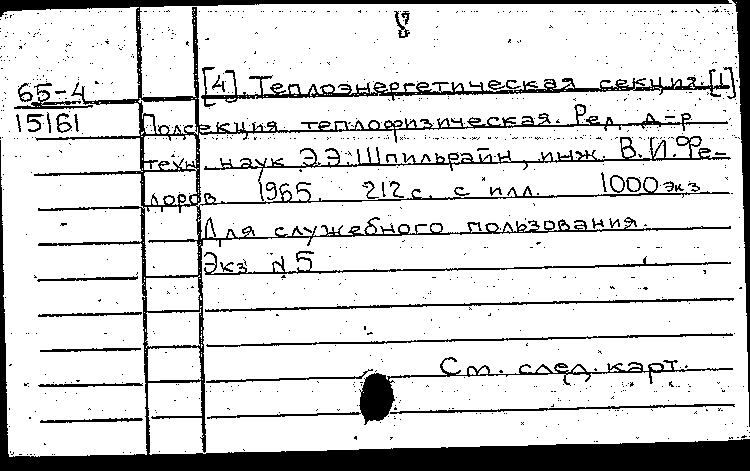 8
65-4
15161
[4]. Теплоэнергетическая секция. [1]
Подсекция теплофизическая. Ред. д-р
техн. наук Э.Э. Шпильрайн, инж. В.И. Фе-
доров. 1965. 212 с. с илл. 1000 экз
Для служебного пользования.
Экз N 5
См. след. карт.